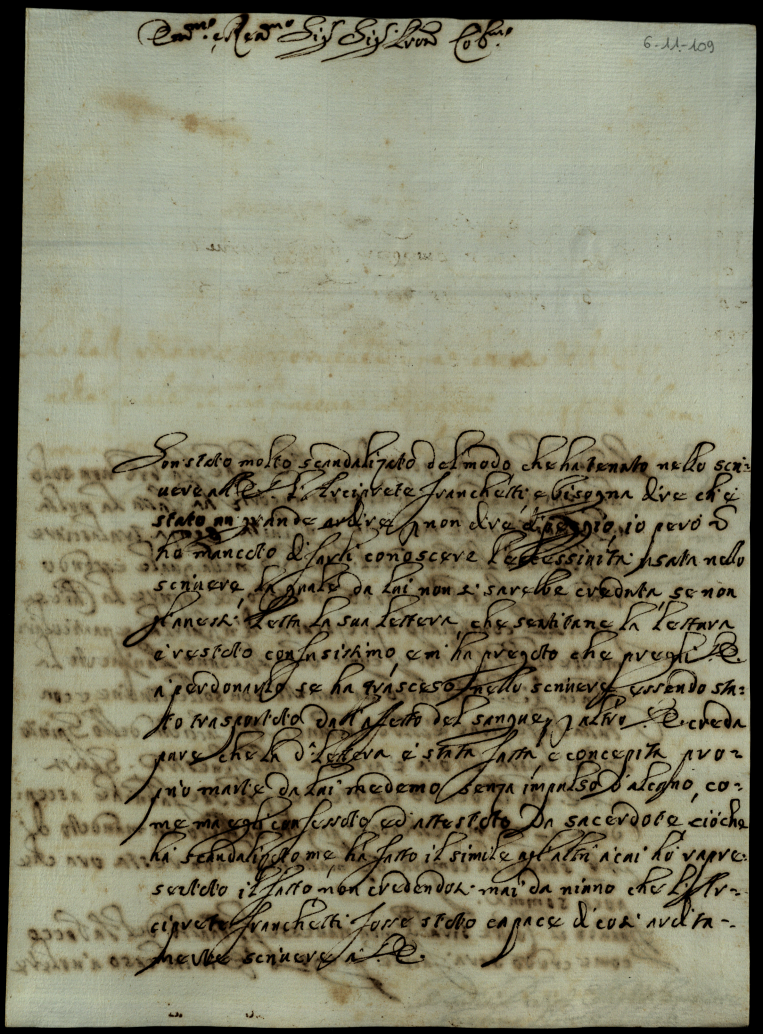 Em.mo e Rev.mo Sig.r Sig.r Pron Col.mo
6-11-109
Son stato molto scandalizato del modo che ha tenuto nello scri=
uere all'E.V. l'Arciprete Franchetti, e bisogna dire ch'è
stato un grande ardire p non dire io però ñ
ho mancato di farli conoscere l'eccessività usata nello
scriuere la quale da lui non si sarebbe creduta, se non
li hauessi letta la sua lettera, che sentitane la lettura
è restato confusissimo e m'ha pregato che preghi V.E.
a perdonarlo se ha trasceso nello scriuere essendo sta-
to trasportato dall'afetto del sangue, p altro V.E. creda
pure che la d.a lettera è stata fatta e concepita pro-
prio marte da lui medemo senza impulso d'alcuno, co-
me ma egli confessato ed attestato Da sacerdote, ciò che
ha scandalizato me ha fatto il simile agl'altri a cui hò rapre-
sentato il fatto non credendosi mai da niuno che l'Ar-
ciprete Franchetti fosse stato capace di cosi ardita-
mente scriuere à V.E.